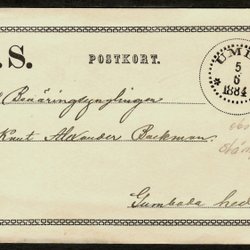 .S.
POSTKORT.
UME
5
6
1884
Beväringsynglingen
Knut Alexander Backman
Gumboda hed